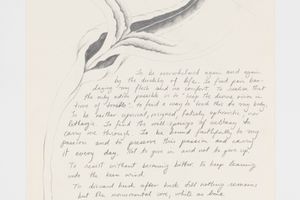 To be overwhelmed again and again
by the duality of life. To find pain ban-
daging my flesh and no comfort. To realize that
the only action possible is to "keep the divine vision in
time of trouble", to find a way to lead this to my body.
To be neither cynical, resigned, falsely optimistic, nor
lethargic. To find the wild springs of ecstasy to
carry me through. To be bound faithfully to my
passion and to preserve this passion and carry
it every day. Not to give in and not to give up.
To resist without becoming bitter. to keep leaning
into the keen wind.
To discard husk after husk till nothing remains
but the monumental core, white as bone.